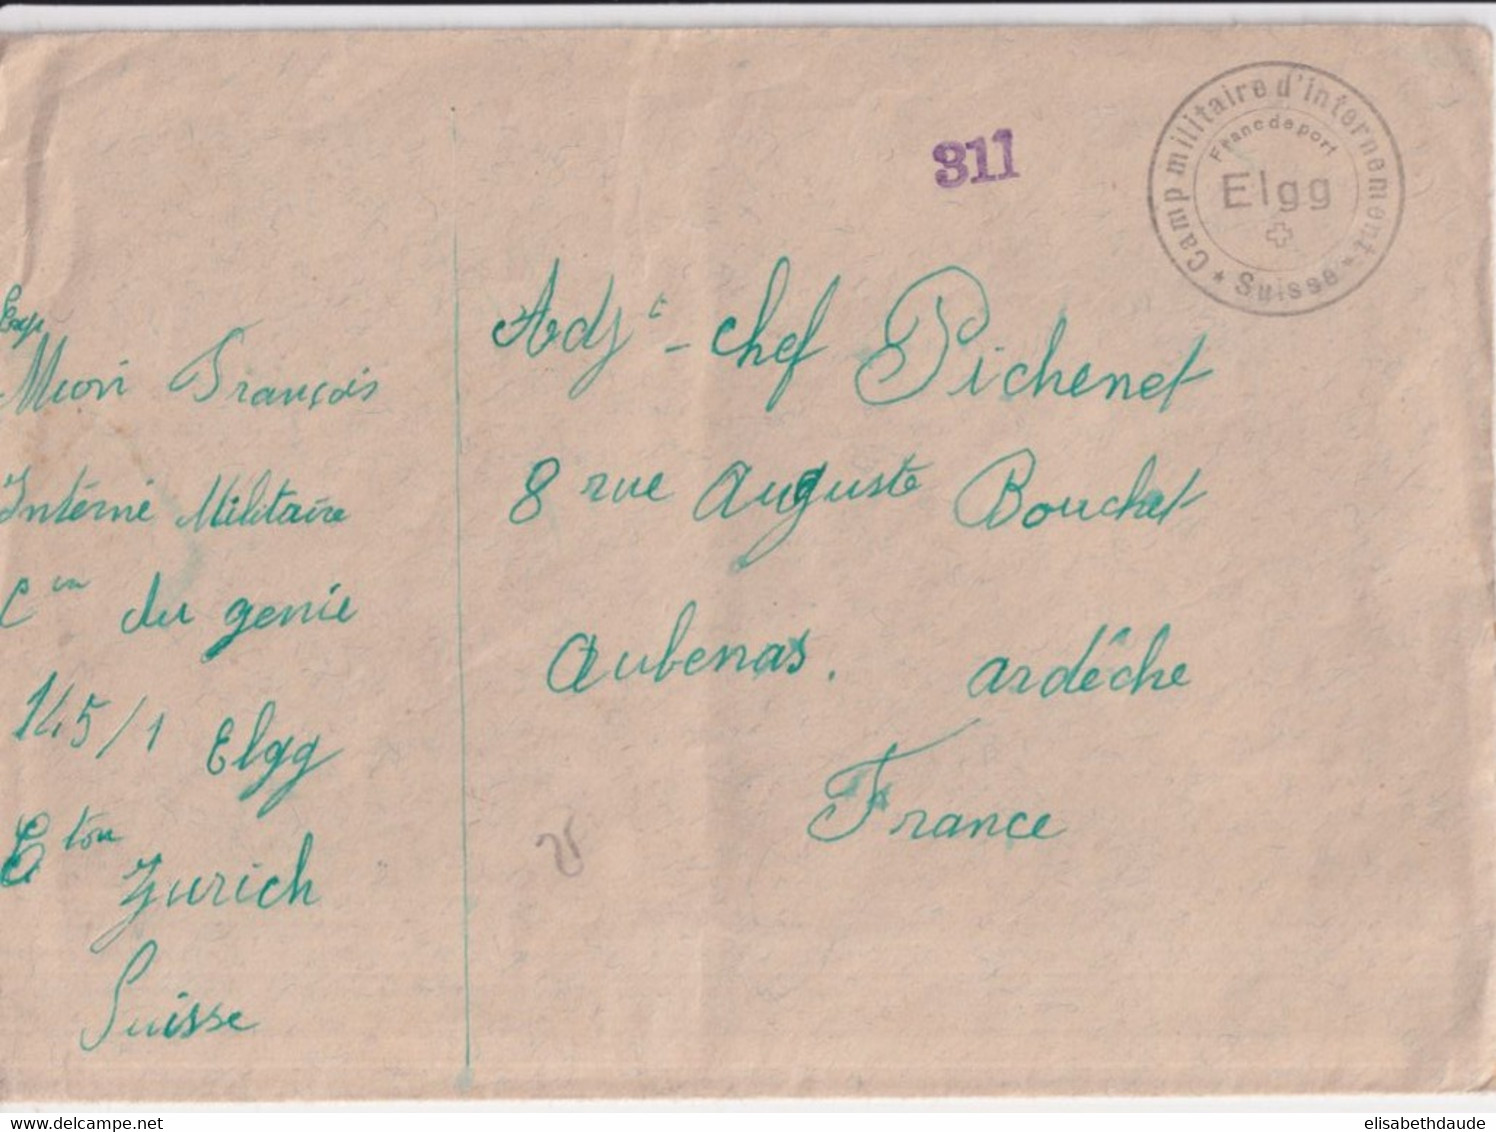 Camp militaire d'internement
Franc de port
Elgg
Suisse
311
Exp
François
Interné Militaire
Cie du génie
145/1 Elgg
Cton
Zurich
Suisse
Adjt-chef Pichenet
8 rue Auguste Bouchet
Aubenas. Ardèche
France
elisabethdaude